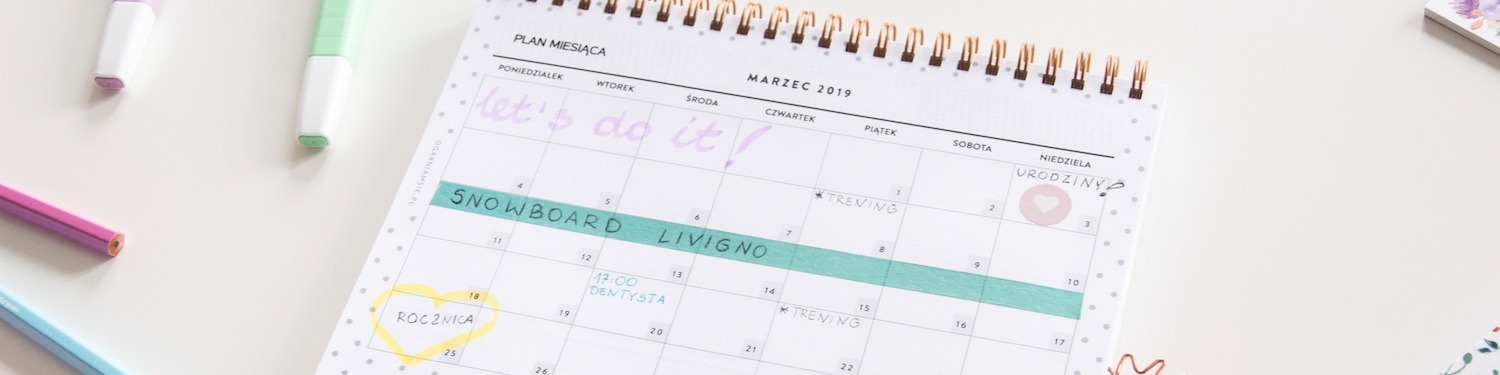 PLAN MIESIĄCA
MARZEC 2019
PONIEDZIAŁEK WTOREK ŚRODA CZWARTEK PIĄTEK SOBOTA NIEDZIELA
let's do it!
URODZINY!
1 2 3
*TRENING
4 5 6 7 8 9 10
SNOWBOARD LIVIGNO
11 12 13 14 15 16 17
17:00
DENTYSTA
*TRENING
18 19 20 21 22
ROCZNICA
25 26
OGARNIAMSIE.PL